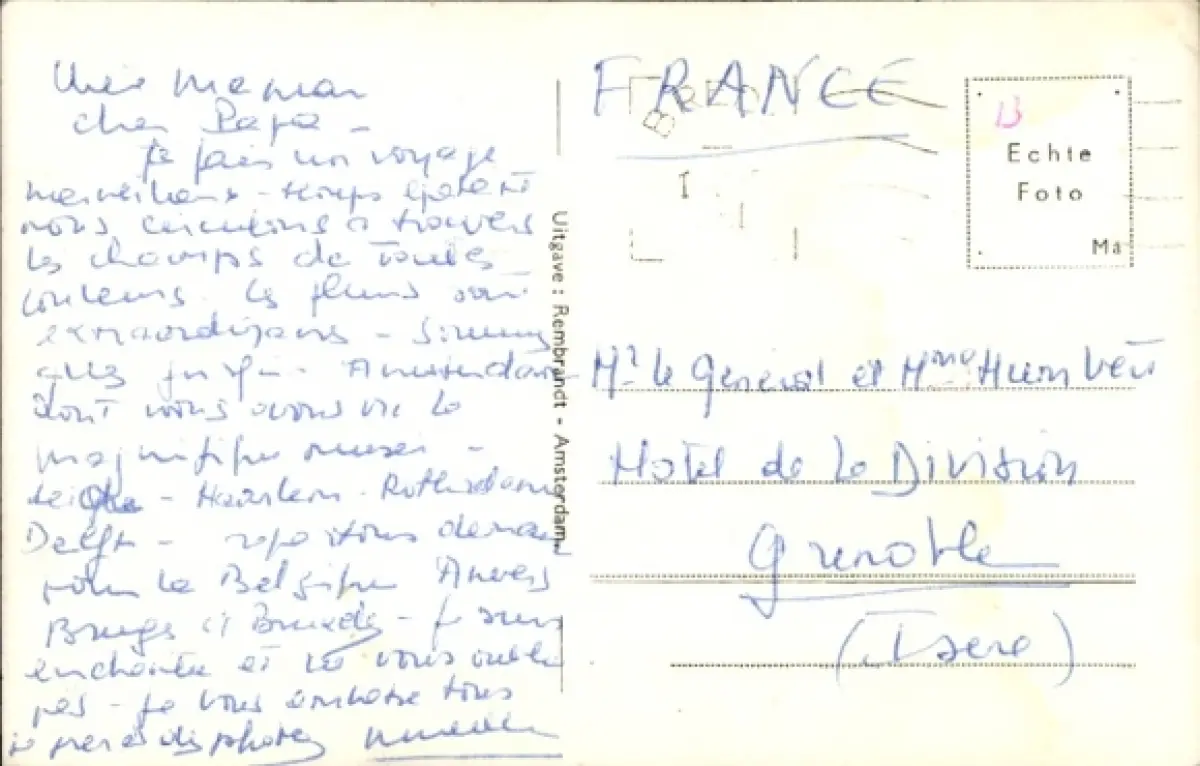 Chère Maman
cher Papa -
Je fais un voyage
merveilleux - temps
nous circulons à travers
les champs de toutes
couleurs. Les fleurs sont
extraordinaires -
Amsterdam
dont nous avons vu le
magnifique musée -
Haarlem - Rotterdam
Delft - repartons demain
Anvers
Bruges et Bruxelles - je suis
enchantée et ne vous oublie
pas - je vous embrasse tous
Uitgave: Rembrandt - Amsterdam.
FRANCE
B
Echte
Foto
Ma
Mr le Général et Mme
Hôtel de la Division
Grenoble
(Isère)